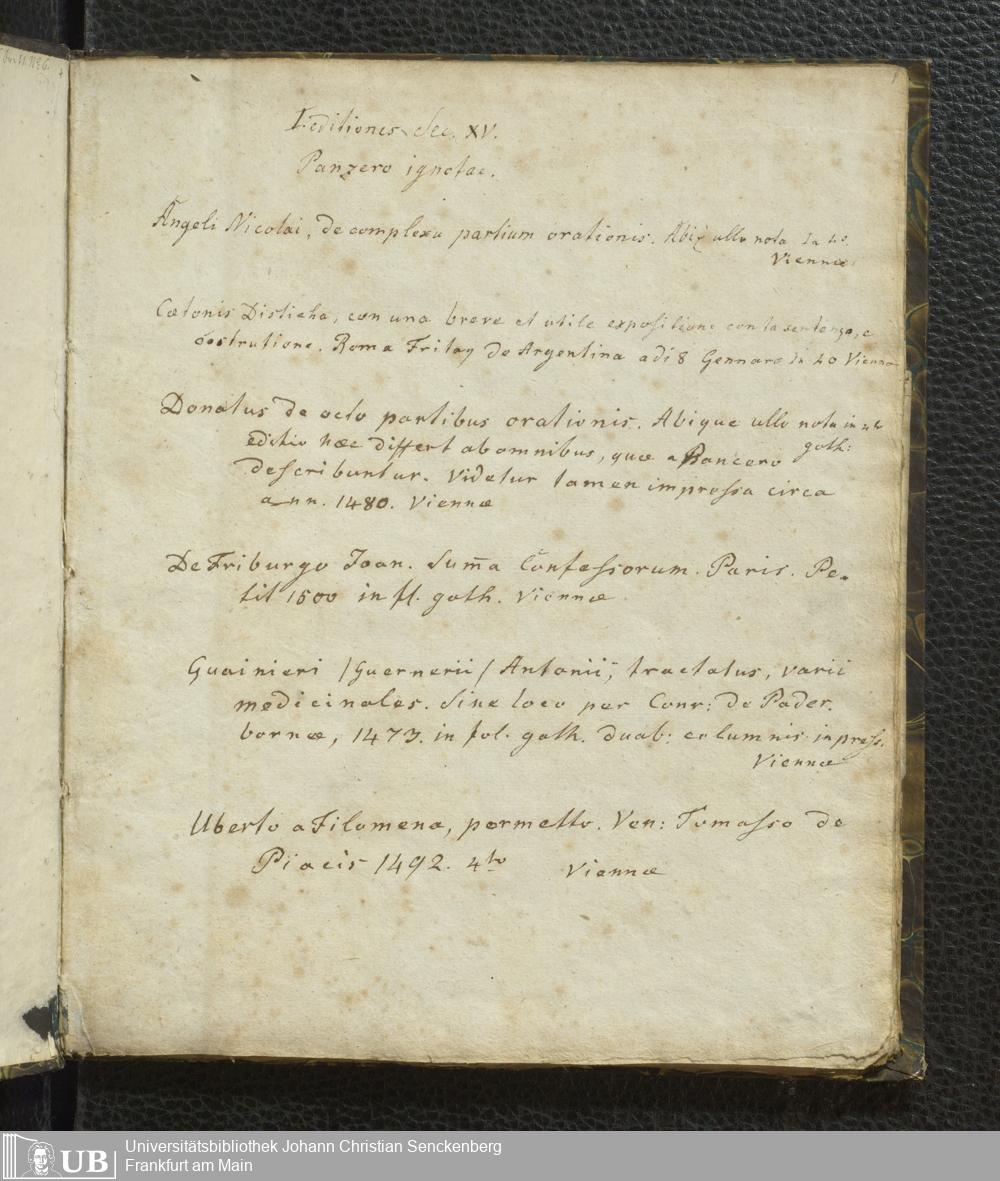 I. editiones Sec. XV.
Panzero ignotae.
Angeli Nicolai, de complexu partium orationis. Absq ullo nota In 4o.
Viennæ
Catonis Disticha, con una breve et utile expositione con la sentenza, e
costrutione. Roma Fritag de Argentina adi 8 Gennaro In 4o Viennæ
Donatus de octo partibus orationis. Absque ullo nota in 4to
goth:
editio hæc differt ab omnibus, quæ a Pancero
describuntur. Videtur tamen impressa circa
ann. 1480. Viennæ
De Friburgo Joan. Sum̄a Confessorum. Paris. Pe-
tit 1500 in fl. goth. Viennæ
Guainieri /Guernerii/ Antonii, tractatus, varii
medicinales. Sine loco per Conr: de Pader.
bornæ, 1473. in fol. goth. duab: columnis impress.
Viennæ
Uberto a Filomena, permetto. Ven: Tomasso de
Piacis 1492. 4to Viennæ
UB
Universitätsbibliothek Johann Christian Senckenberg
Frankfurt am Main